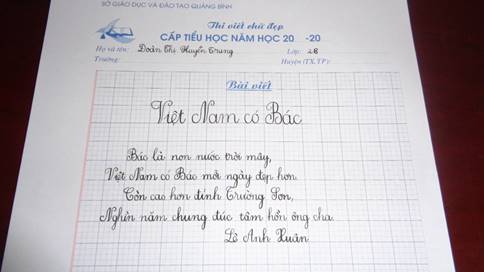 SỞ GIÁO DỤC VÀ ĐÀO TẠO QUẢNG BÌNH
Thi viết chữ đẹp
CẤP TIỂU HỌC NĂM HỌC 20 -20
Họ và tên: Đoàn Thị Huyền Trung Lớp: 2B
Trường: Huyện (TX, TP):
Bài viết
Việt Nam có Bác
Bác là non nước trời mây,
Việt Nam có Bác mỗi ngày đẹp hơn.
Còn cao hơn đỉnh Trường Sơn,
Nghìn năm chung đúc tâm hồn ông cha.
Lê Anh Xuân